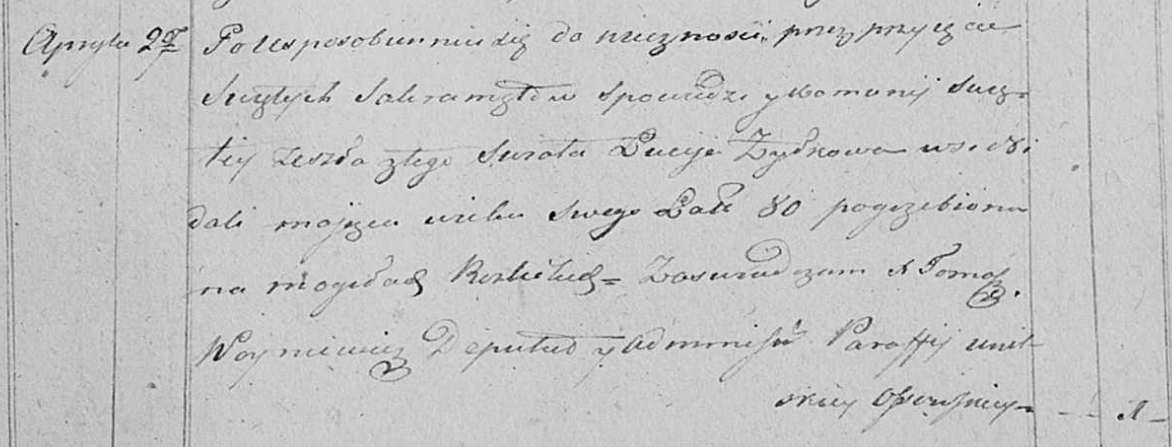 Apryla 2g Po Usposobieniu się do wieczności, przez przyięcie
Swiętych Sakramętow Spowiedzi y Komunij Swię-
tey zeszła z tego Swiata Łucyja Zydkowa
dali maiąca wieku Swego Lat 80 pogrzebiona
na mogiłach Zaswiadczam X Tomasz
Woyniewicz Deputat y Administr Paraffij unit
skiey